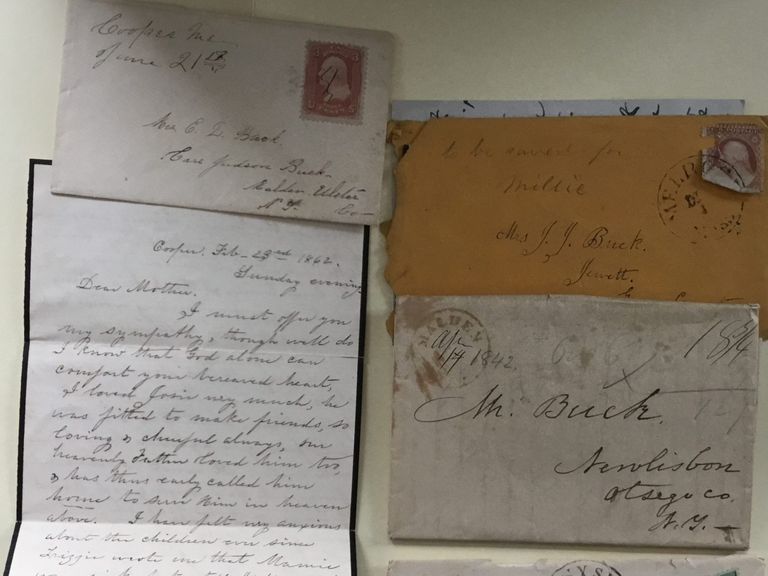 Cooper Me
Jan 21st
3 3
U S
Mrs E. D. Buck.
Care Judson Buck.
Malden, Ulster
N. Y. Co
Cooper. Feb. 23rd 1862.
Sunday evening.
Dear Mother.
I must offer you
my sympathy, though well do
I know that God alone can
comfort your bereaved heart,
I loved Josie very much, he
was fitted to make friends, so
loving & cheerful always, our
heavenly Father loved him too,
& has thus early called him
home to serve Him in heaven
above. I have felt very anxious
about the children ever since
Lizzie wrote me that Mamie
to be saved for
Millie
Mrs J. J. Buck.
Jewett.
MALDEN
Apr
14 1842
18 3/4
Mr. Buck.
Newlisbon
Otsego Co.
N. Y.